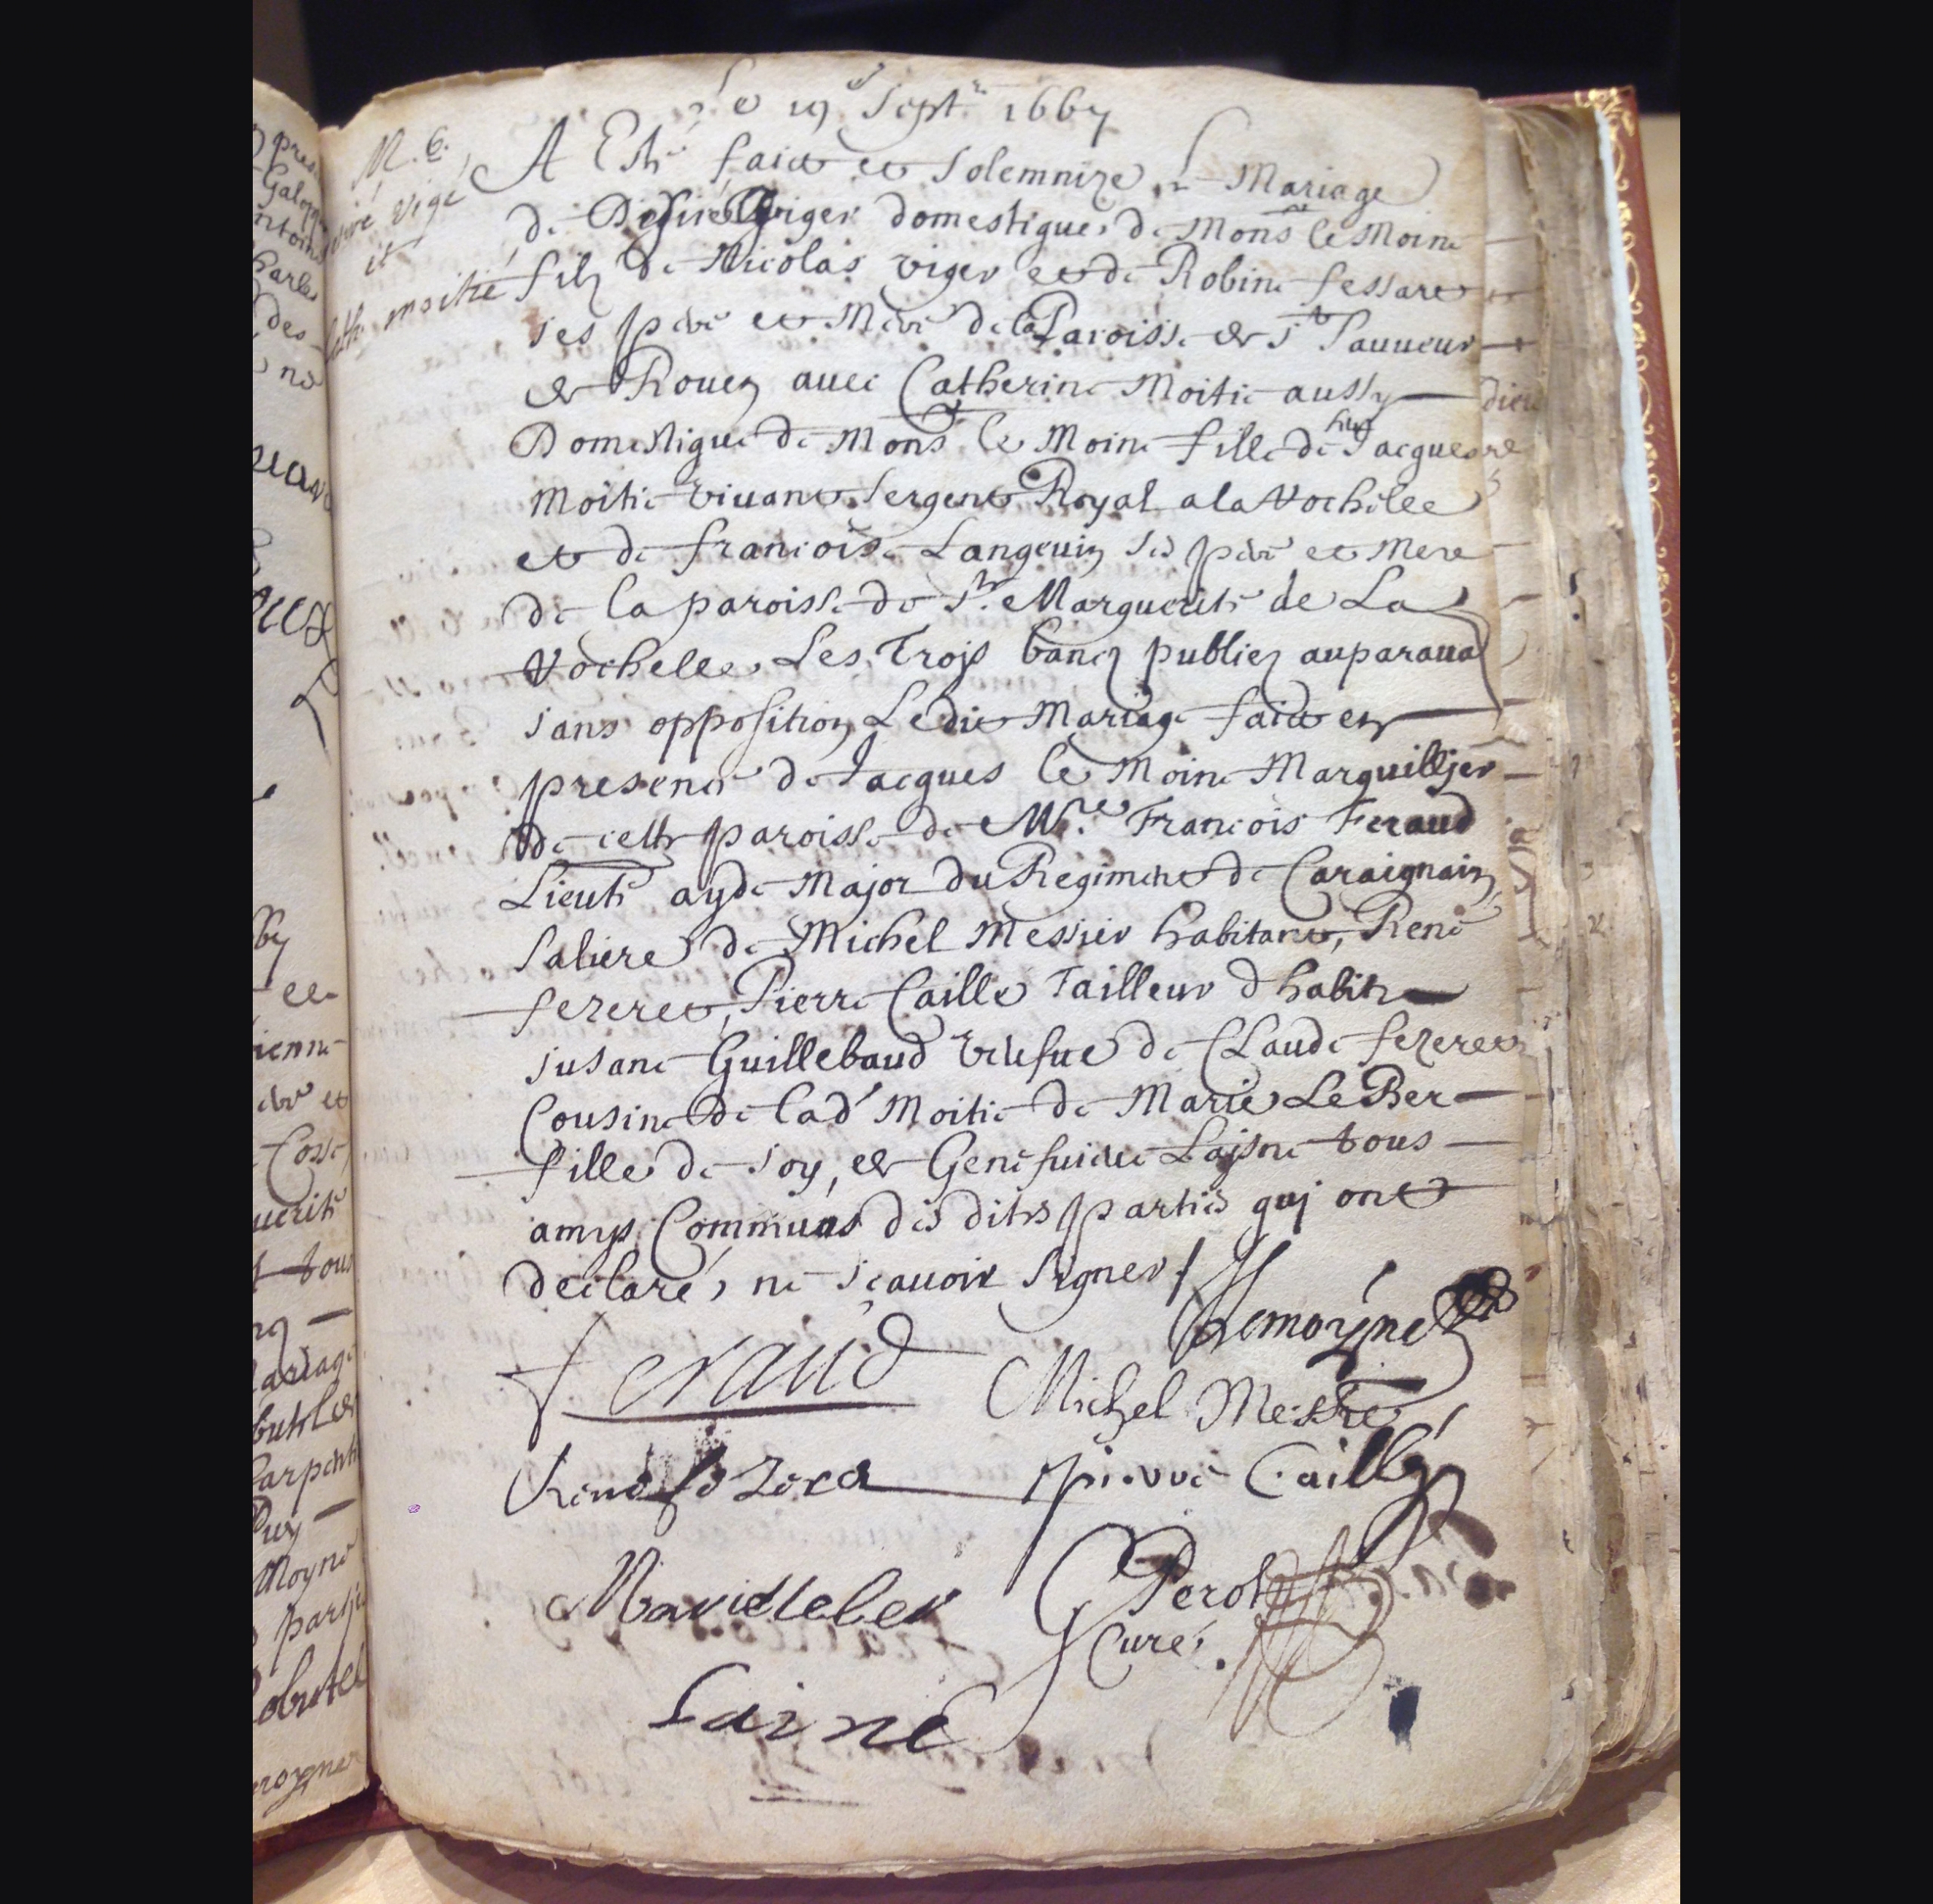 Le 19e Septr 1667
M. 6.
viré Vigé
et
Cath. moitié
A Esté faict et Solemnize le Mariage
de Desire Viger domestique de Monsr le Moine
filz de Nicolas viger et de Robine fessart
ses pere et Mere de la Paroisse de St Sauueur
de Rouen auec Catherine Moitie aussy
Domestique de Monsr le Moine fille de feu Jacques
Moitie viuant Sergent Royal a la Rochelle
et de francoise Langeuin ses pere et Mere
de la paroisse de Ste Marguerite de La
Rochelle. Les Trois bancz publiez auparaua
sans opposition Ledit Mariage faict en
presence de Jacques le Moine Marguillier
de cette paroisse de Mre François Feraud
Lieutt ayde Major du Regiment de Caraignain
Saliere de Michel Messier habitant, René
fezeret, Pierre Caille Tailleur d habitz
Susane Guillebaud vefue de Claude fezeret
Cousine de lad Moitie de Marie Le Ber
fille de soy, et Genefuieue Laisne tous
amys Communs des dites parties qui ont
declaré, ne scauoir Signer /
Lemoyne
feraud
Michel Messie
René fezeret
pierre Caillé
Marie leber
G Perot
Curé.
Lainé